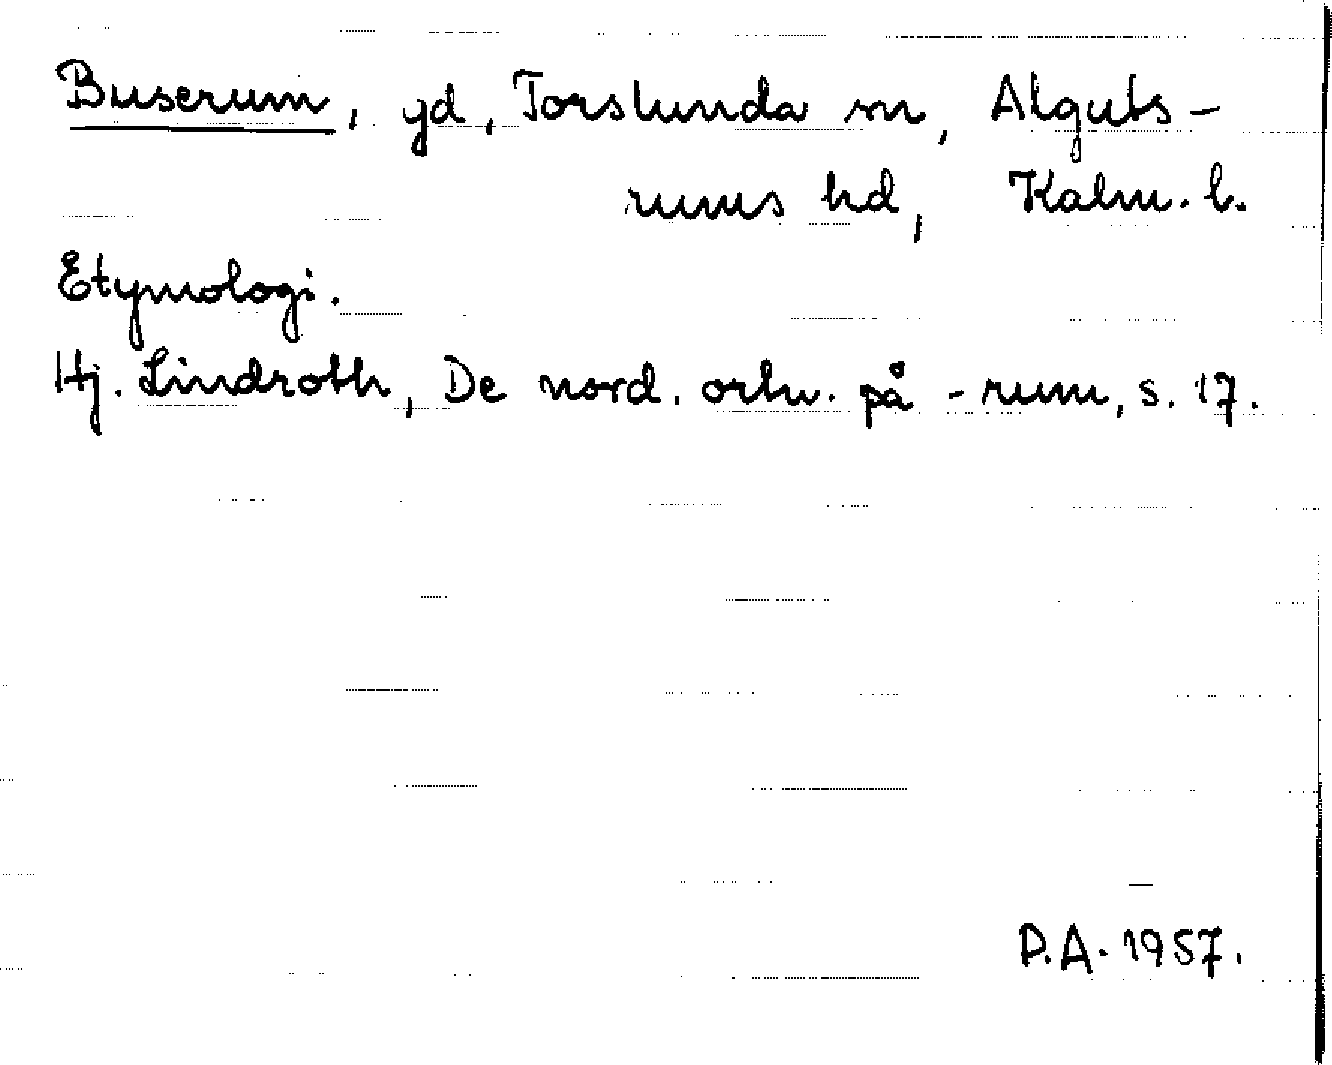 Buserum, gd, Torslunda sn, Alguts-
rums hd, Kalm. l.
Etymologi.
Hj. Lindroth, De nord. ortn. på -rum, s. 17.
P.A. 1957.